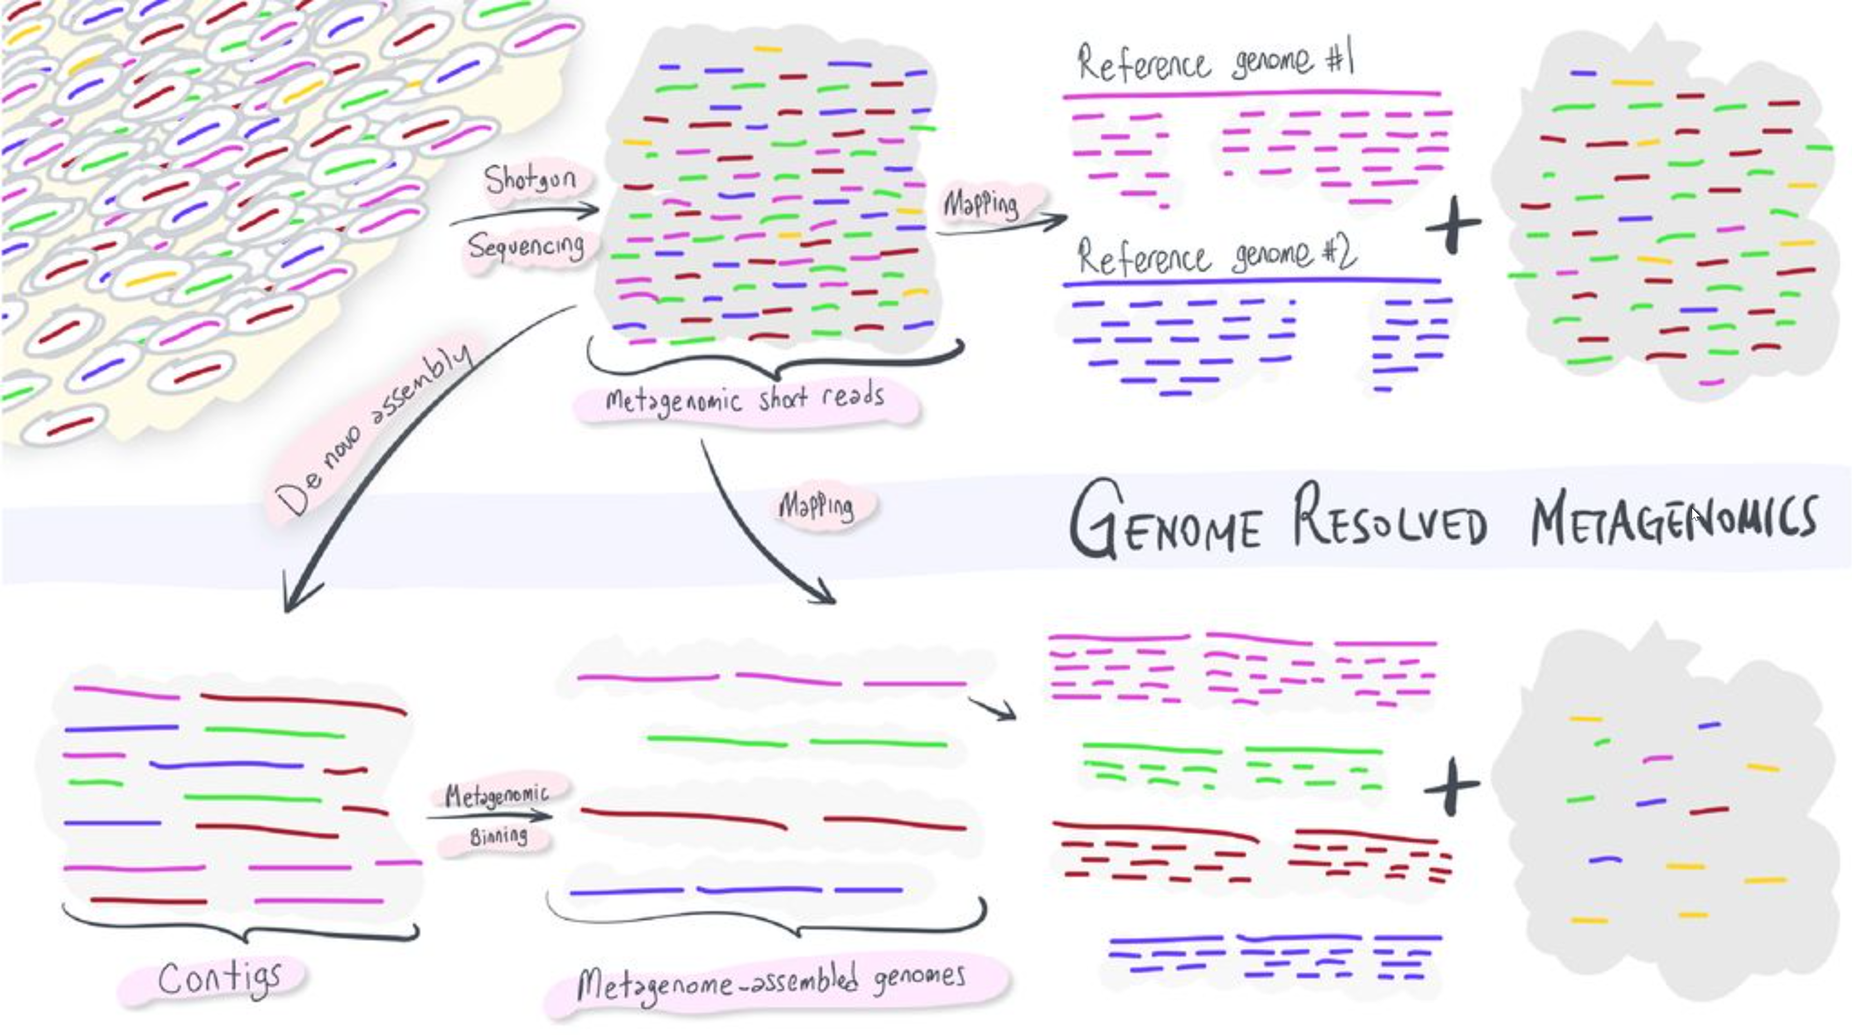 Shotgun
Sequencing
Mapping
Reference genome #1
Reference genome #2
De novo assembly
Metagenomic short reads
Mapping
GENOME RESOLVED METAGENOMICS
Metagenomic
Binning
Contigs
Metagenome-assembled genomes